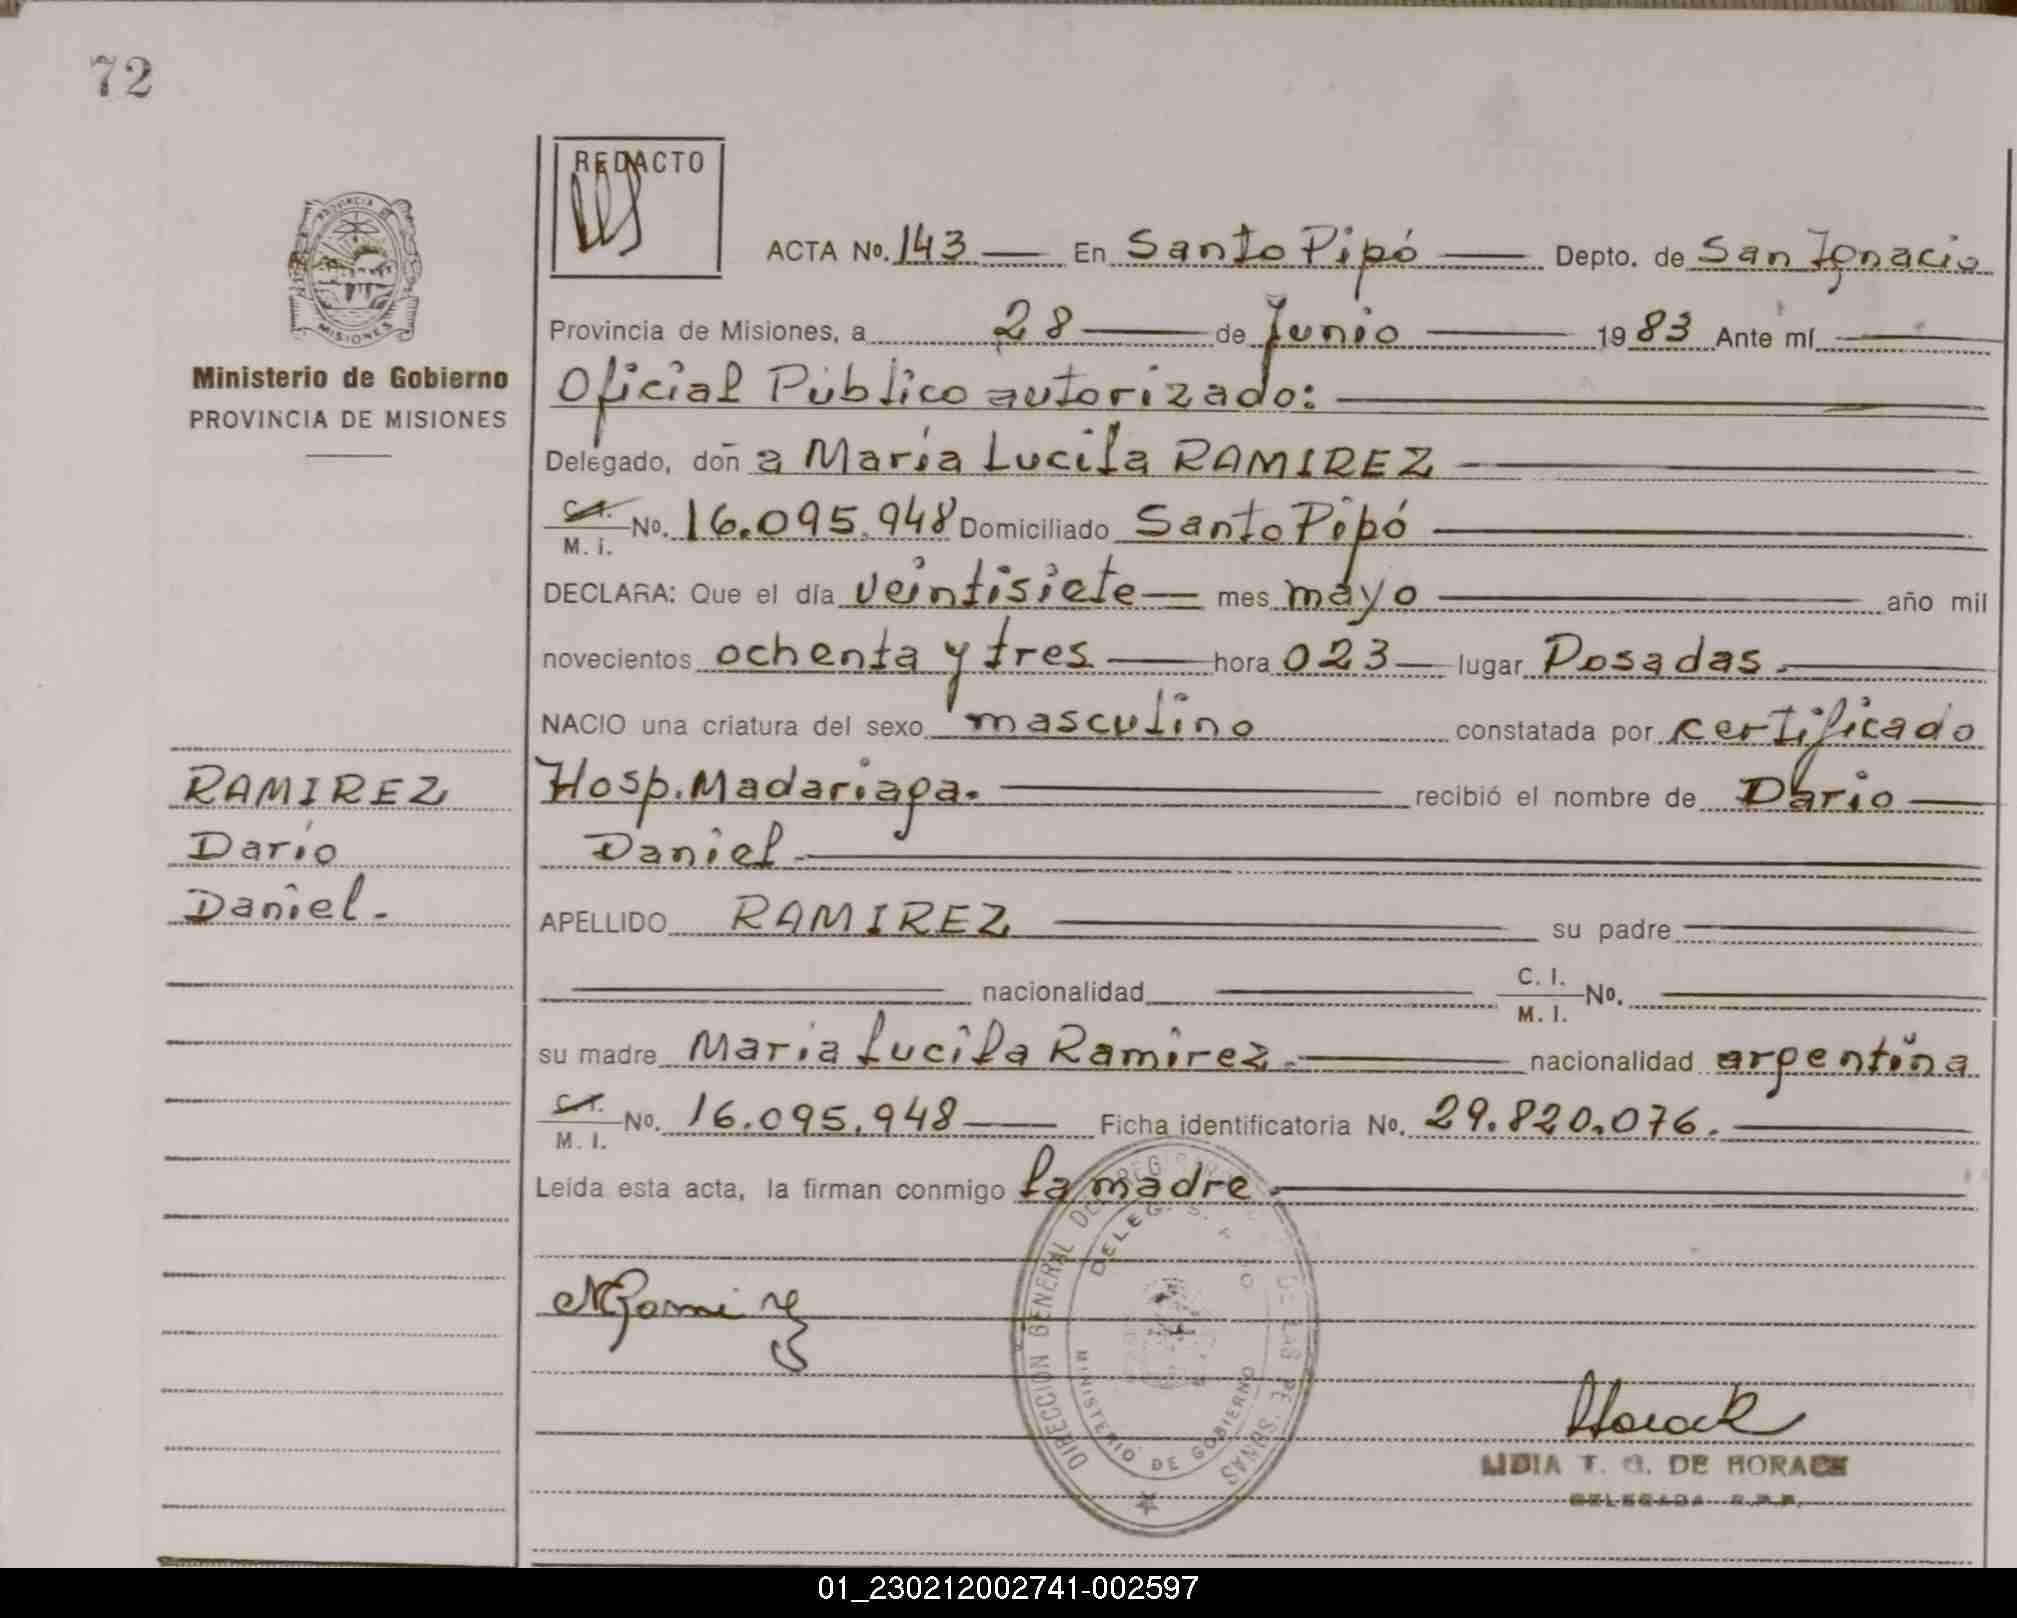 72
REDACTO
ACTA No. 143 En Santo Pipó Depto. de San Ignacio
PROVINCIA DE
MISIONES
Provincia de Misiones, a 28 de Junio 1983 Ante mí
Ministerio de Gobierno
PROVINCIA DE MISIONES
Oficial Público autorizado:
Delegado, doñ a María Lucila RAMIREZ
C.I. M. i. No. 16.095.948 Domiciliado Santo Pipó
DECLARA: Que el día veintisiete mes mayo año mil
novecientos ochenta y tres hora 023 lugar Posadas
NACIO una criatura del sexo masculino constatada por certificado
Hosp. Madariaga. recibió el nombre de Dario
Daniel
RAMIREZ
Darío
Daniel.
APELLIDO RAMIREZ su padre
nacionalidad C. I. M. I. No.
su madre Maria Lucila Ramirez. nacionalidad argentina
C.I. M. I. No. 16.095.948 Ficha identificatoria No. 29.820.076.
Leída esta acta, la firman conmigo la madre.
DIRECCION GENERAL DE
DELEG.
MINISTERIO DE GOBIERNO
Horack
LIDIA T. G. DE HORACK
DELEGADA R.P.P.
01_230212002741-002597